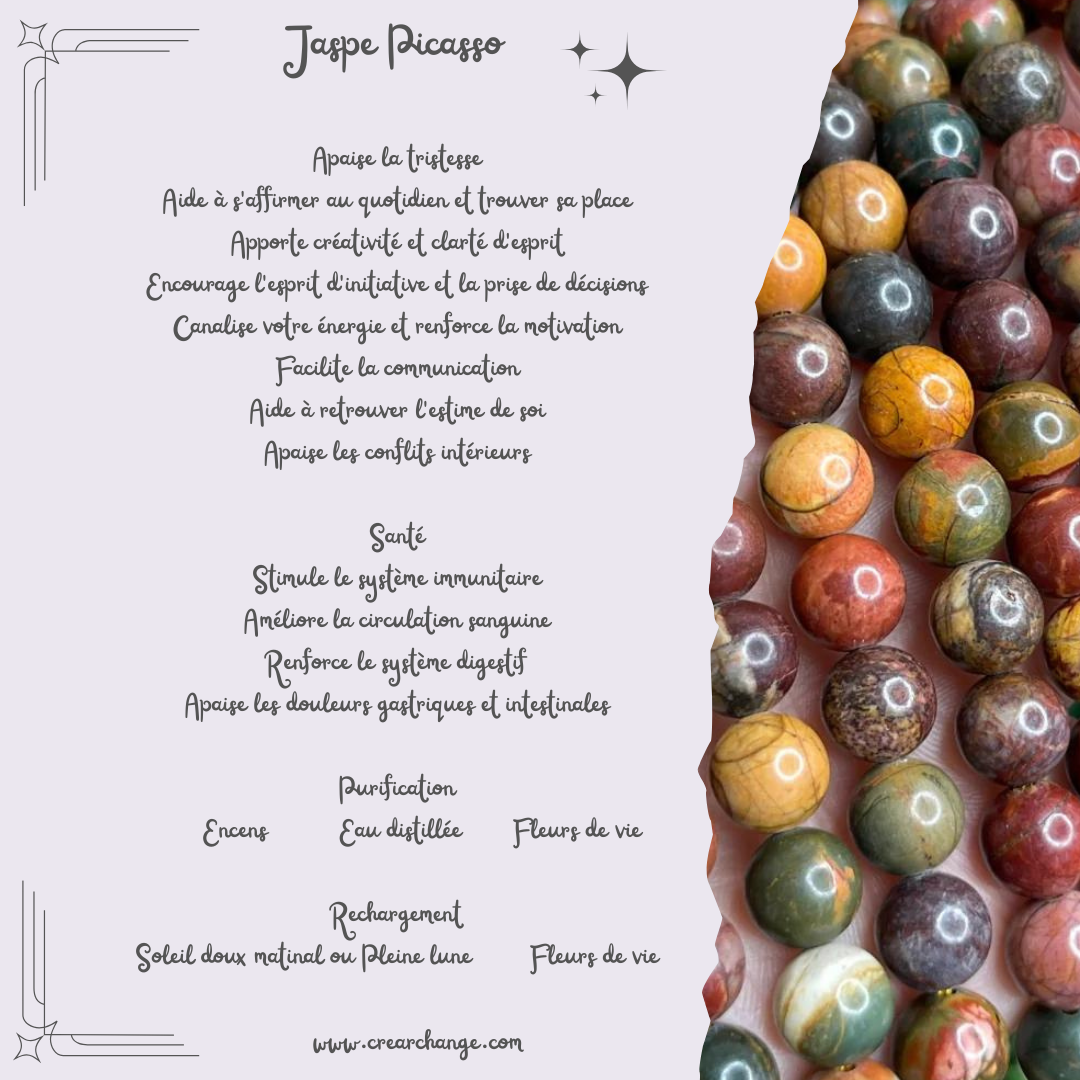 Jaspe Picasso
Apaise la tristesse
Aide à s'affirmer au quotidien et trouver sa place
Apporte créativité et clarté d'esprit
Encourage l'esprit d'initiative et la prise de décisions
Canalise votre énergie et renforce la motivation
Facilite la communication
Aide à retrouver l'estime de soi
Apaise les conflits intérieurs
Santé
Stimule le système immunitaire
Améliore la circulation sanguine
Renforce le système digestif
Apaise les douleurs gastriques et intestinales
Purification
Encens Eau distillée Fleurs de vie
Rechargement
Soleil doux matinal ou Pleine lune Fleurs de vie
www.crearchange.com